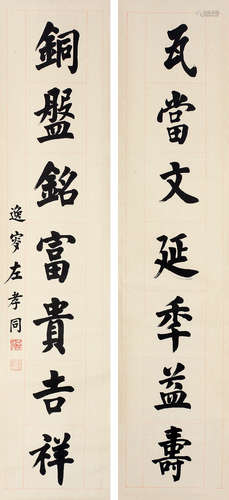 瓦當文延年益壽
銅盤銘富貴吉祥
逸叟左孝同